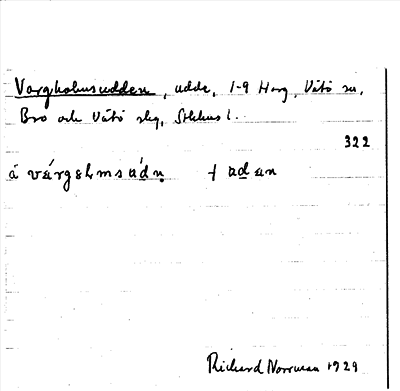 Vargholmsudden, udde, 1-9 Harg, Vätö sn,
Bro och Vätö skg, Sthlms l.
322
á várgɛhms údn̥ ɫ udɛn
Richard Norrman 1929